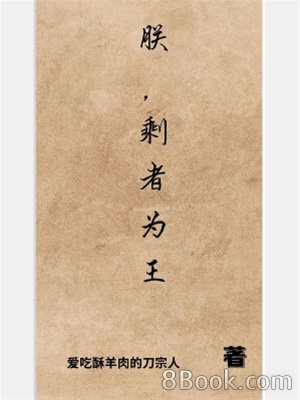 朕，剩者为王
爱吃酥羊肉的刀宗人 著
8Book.com